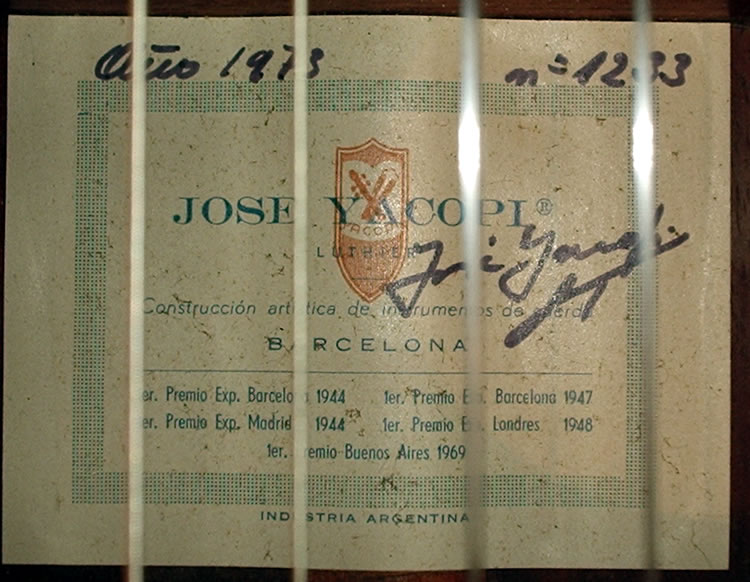 Año 1973 nº 1233
JOSE YACOPI®
YACOPI
LUTHIER
José Yacopi
Construcción artística de instrumentos de cuerda
BARCELONA
1er. Premio Exp. Barcelona 1944 1er. Premio Exp. Barcelona 1947
1er. Premio Exp. Madrid 1944 1er. Premio Exp. Londres 1948
1er. Premio Buenos Aires 1969
INDUSTRIA ARGENTINA